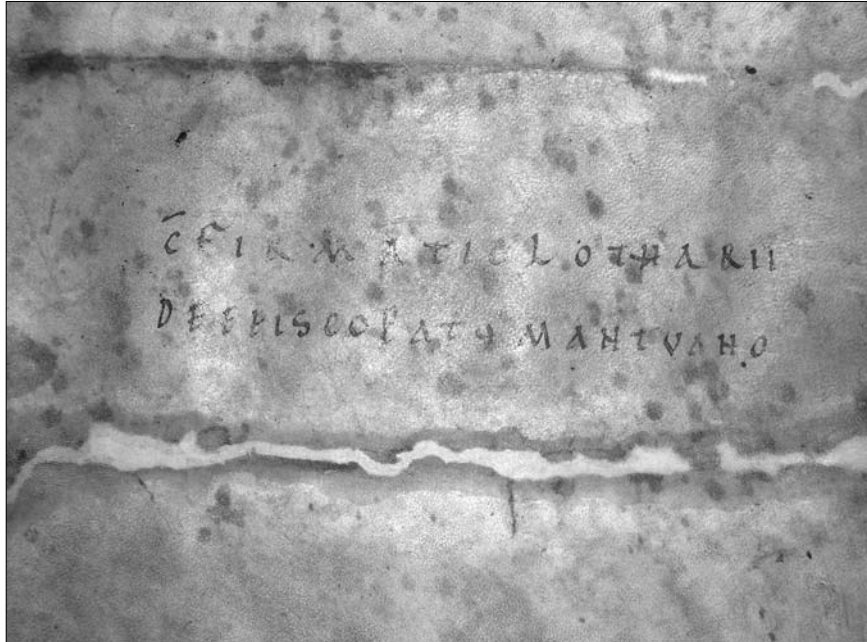 C̄FIRMATIC LOTHARII
DE EPISCOPATV MANTVANO